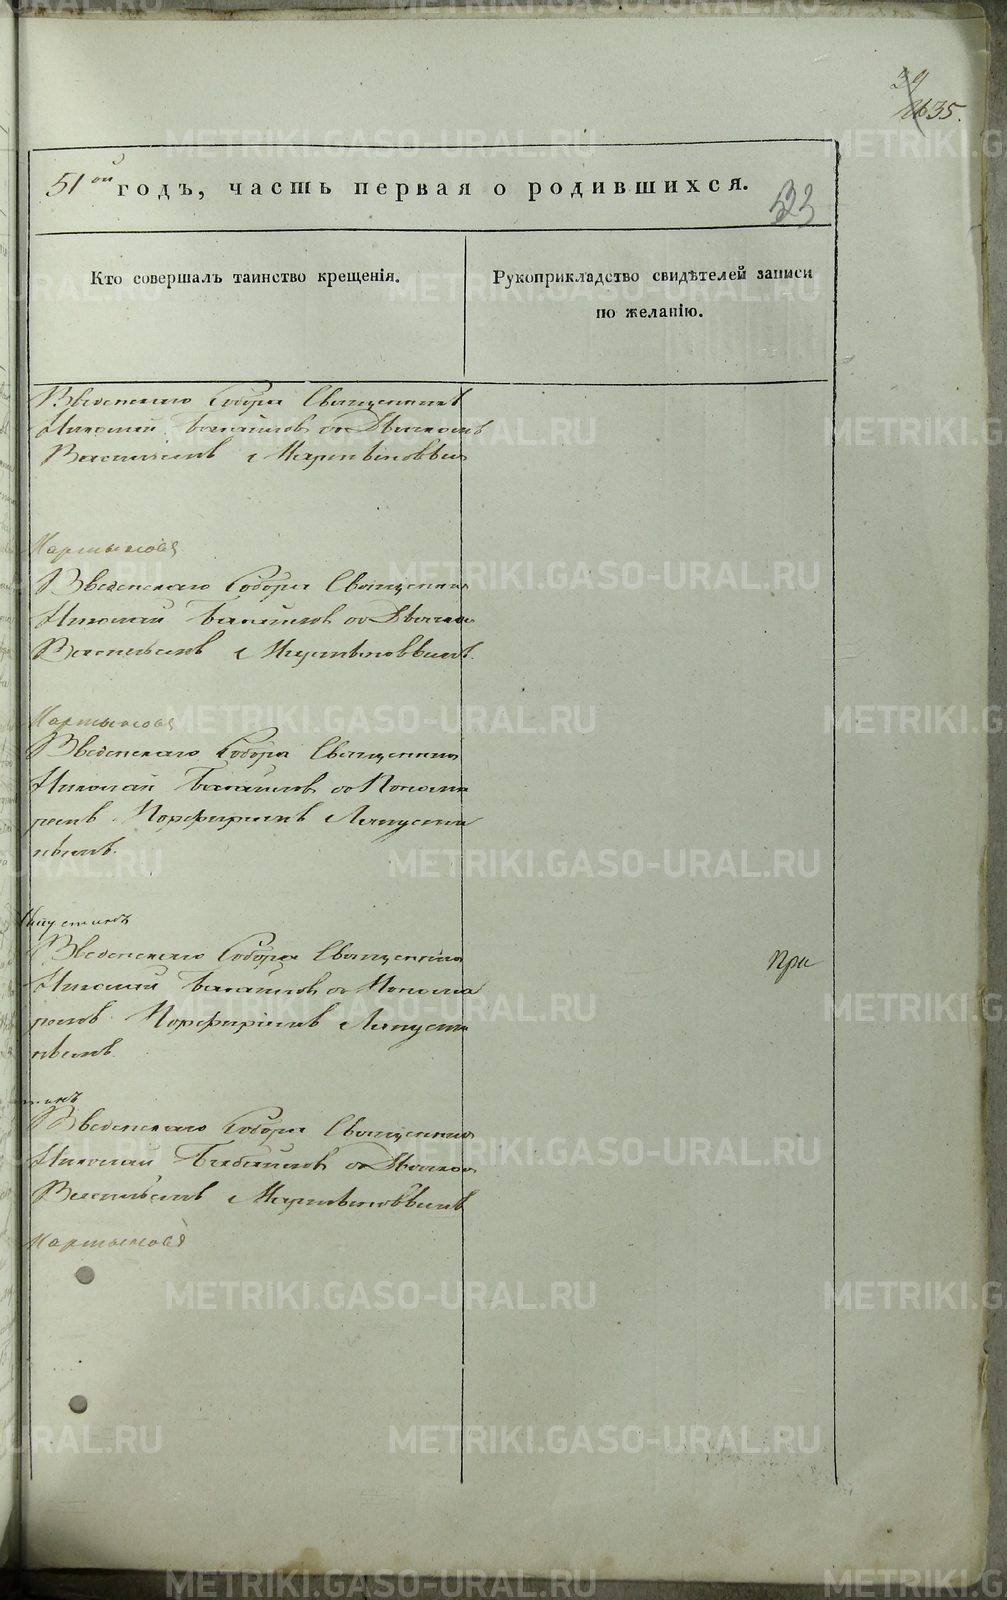 39
35.
51ой годъ, часть первая о родившихся.
33
Кто совершалъ таинство крещенія.
Рукоприкладство свидѣтелей записи
по желанію.
Введенскаго Собора Священникъ
Николай со Дьячкомъ
Василіемъ Мартыновымъ
Мартыновъ
Введенскаго Собора Священникъ
Николай со Дьячко
Васильемъ Мартыновымъ
Мартыновъ
Введенскаго Собора Священник
Николай со Понома
ремъ Порфиріемъ Ляпусти
нымъ.
Ляпустинъ
Введенскаго Собора Священник
Николай со Понома
ремъ Порфиріемъ Ляпусти
нымъ.
При
Введенскаго Собора Священник
Николай со Дьячко
Васильемъ Мартыновымъ
Мартыновъ
METRIKI.GASO-URAL.RU